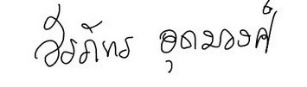 วีรภัทร อุดมวงศ์